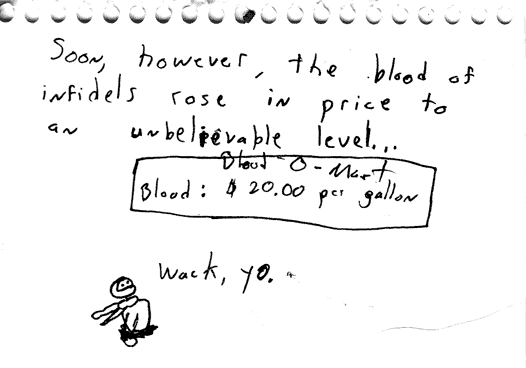 Soon, however, the blood of
infidels rose in price to
an unbelievable level...
Blood-O-Mart
Blood: $20.00 per gallon
Wack, yo.